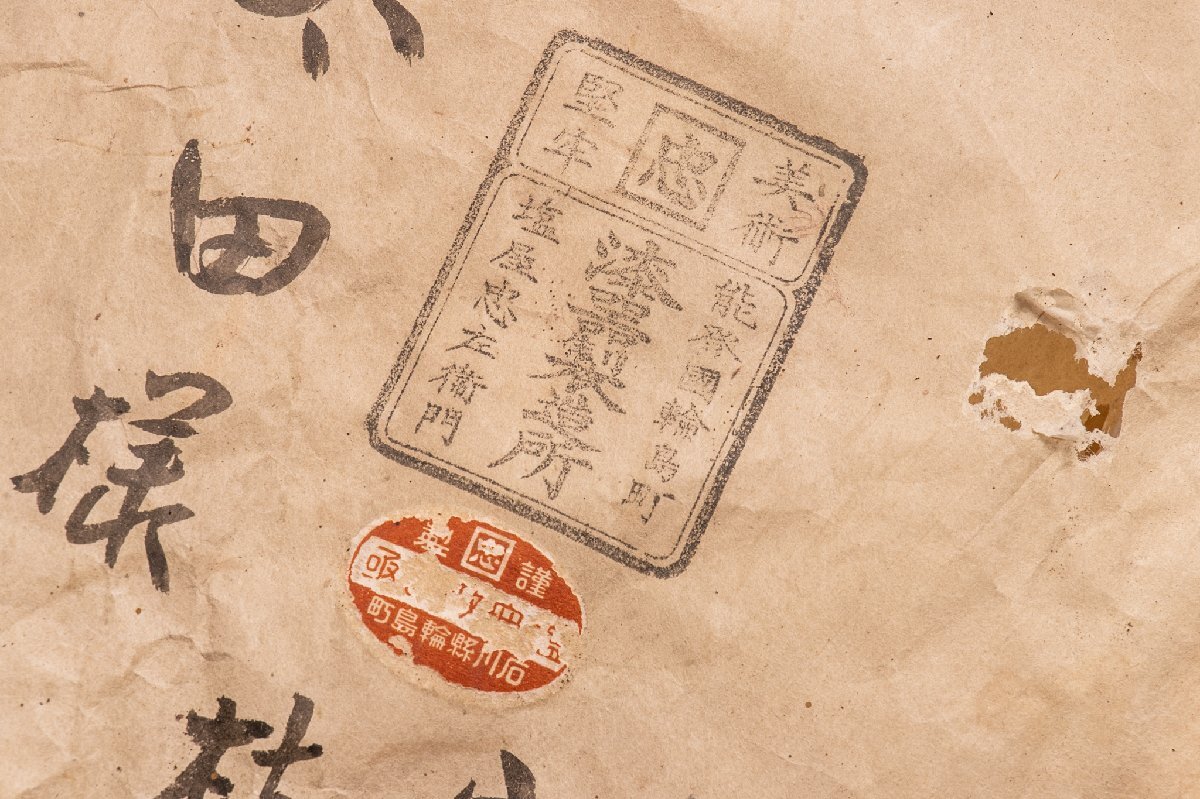 美術
忠
堅牢
能登國輪島町
漆器製造所
塩屋忠左衛門
謹
忠
製
石川縣輪島町
田
様